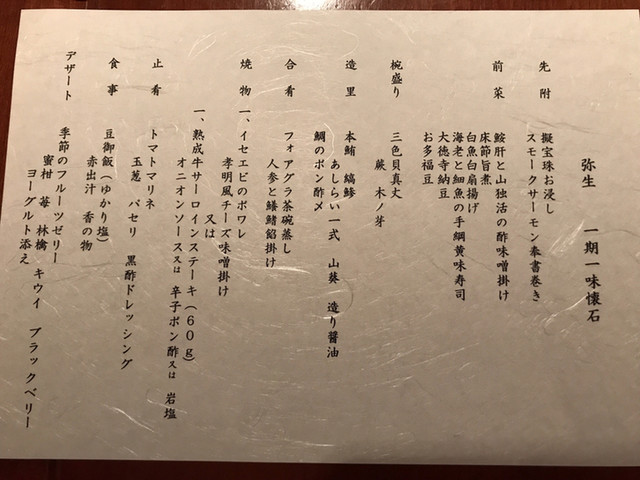 弥生　一期一味懐石
先附　擬宝珠お浸し
スモークサーモン奉書巻き
前菜　鮟肝と山独活の酢味噌掛け
床節旨煮
白魚白扇揚げ
海老と細魚の手綱黄味寿司
大徳寺納豆
お多福豆
椀盛り　三色貝真丈
蕨　木ノ芽
造里　本鮪　縞鯵
あしらい一式　山葵　造り醤油
鯛のポン酢〆
合肴　フォアグラ茶碗蒸し
人参と鱶鰭餡掛け
焼物　一、イセエビのポワレ
孝明風チーズ味噌掛け
又は
一、熟成牛サーロインステーキ(60g)
オニオンソース又は　辛子ポン酢又は　岩塩
止肴　トマトマリネ
玉葱　パセリ　黒酢ドレッシング
食事　豆御飯(ゆかり塩)
赤出汁　香の物
デザート　季節のフルーツゼリー
蜜柑　苺　林檎　キウイ　ブラックベリー
ヨーグルト添え